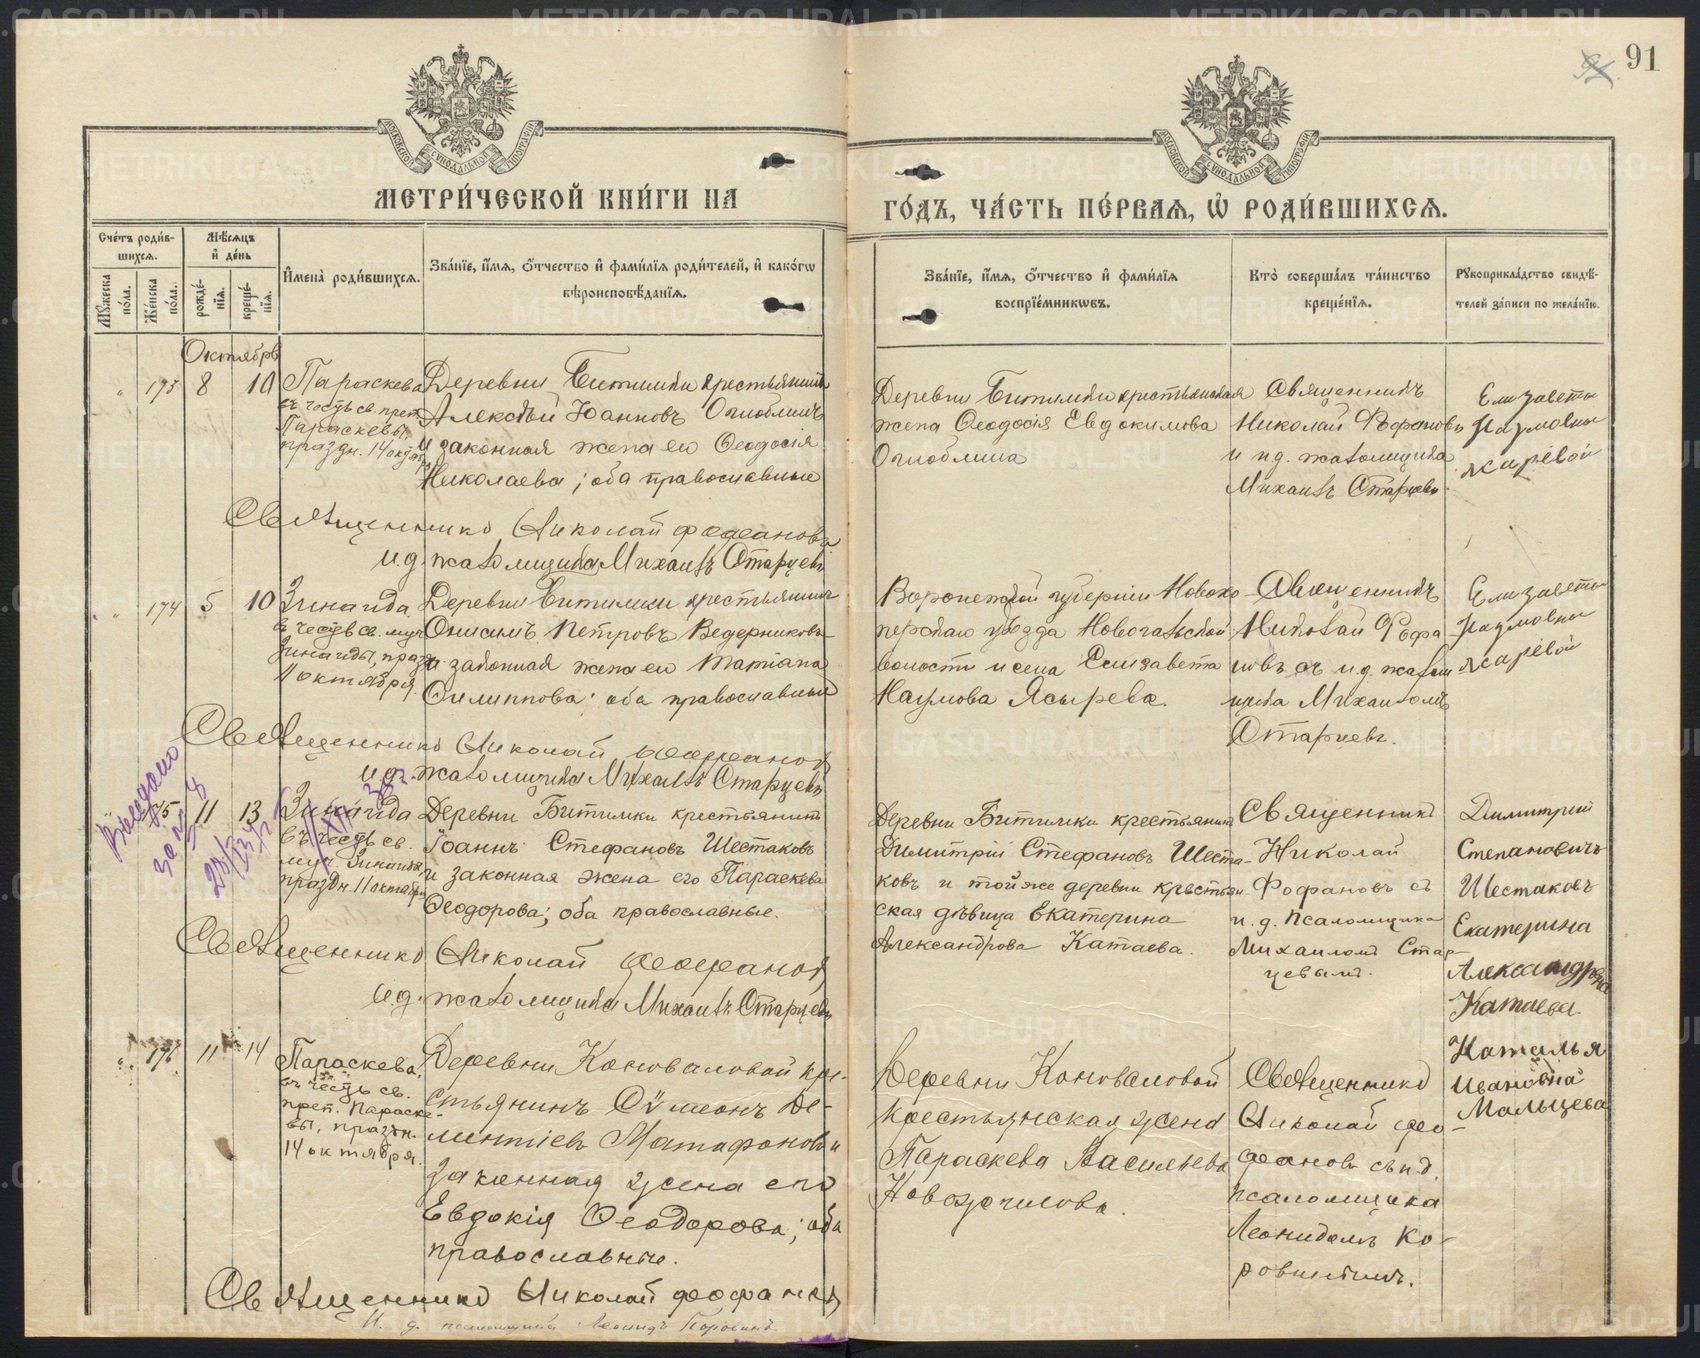 91
МЕТРИ́ЧЕСКОЙ КНИ́ГИ НА
ГО́ДЪ, ЧА́СТЬ ПЕ́РВАЯ, Ѡ҆ РОДИ́ВШИХСЯ.
Сче́тъ роди́в-
шихся.
Мѣ́сяцъ
и҆ де́нь
Мꙋ́жеска по́ла.
Же́нска по́ла.
рожде́-
нїя.
креще́-
нїя.
И҆мена̀ роди́вшихся.
Зва́нїе, и҆́мя, ѻ҆́тчество и҆ фами́лїя роди́телей, и҆ како́гѡ
вѣроисповѣ́данїя.
Зва́нїе, и҆́мя, ѻ҆́тчество и҆ фами́лїя
воспрїе́мникѡвъ.
Кто̀ соверша́лъ та́инство
креще́нїя.
Рꙋкоприкла́дство свидѣ́-
телей за́писи по жела́нїю.
Октябрь
173 8 10 Параскева
въ честь св. преп.
Параскевы,
праздн. 14 окт.
Деревни Битимки крестьянинъ
Алексѣй Іоанновъ Оглоблинъ
и законная жена его Ѳеодосія
Николаева; оба православные
Деревни Битимки крестьянская
жена Ѳеодосія Евдокимова
Оглоблина
Священникъ
Николай Фофановъ
и и.д. псаломщика
Михаилъ Старцевъ.
Елизаветы
Наумовны
Священникъ Николай Фофановъ
и.д. псаломщика Михаилъ Старцевъ
174 5 10 Зинаида
въ честь св. муч.
Зинаиды, празд.
11 октября.
Деревни Битимки крестьянинъ
Онисимъ Петровъ Ведерниковъ
и законная жена его Татіана
Филиппова; оба православные
Воронежской губерніи Новохо-
перскаго уѣзда Новогольской
волости и села Елизавета
Наумова Ясырева.
Священникъ
Николай Фофа
новъ съ и.д. псалом
щика Михаиломъ
Старцевъ.
Елизаветы
Наумовны
Священникъ Николай Фофановъ
и.д. псаломщика Михаилъ Старцевъ
175 11 13 Зинаида
въ честь св.
муч. Зинаиды,
праздн. 11 октября
Деревни Битимки крестьянинъ
Іоаннъ Стефановъ Шестаковъ
и законная жена его Параскева
Ѳеодорова; оба православные.
Деревни Битимки крестьянинъ
Димитрій Стефановъ Шеста-
ковъ и той же деревни крестьян-
ская дѣвица Екатерина
Александрова Катаева.
Священникъ
Николай
Фофановъ съ
и. д. псаломщика
Михаиломъ Стар-
цевымъ.
Димитрий
Степановичъ
Шестаковъ
Екатерина
Александровна
Катаева.
Священникъ Николай Фофановъ
и.д. псаломщика Михаилъ Старцевъ
176 11 14 Параскева,
въ честь св.
преп. Параске-
вы, праздн.
14 октября.
Деревни Коноваловой кре-
стьянинъ Сѵмеонъ Де-
ментіевъ Матафоновъ и
законная жена его
Евдокія Ѳеодорова; оба
православные.
Деревни Коноваловой
крестьянская жена
Параскева Васильева
Священникъ
Николай Фо-
фановъ съ и.д.
псаломщика
Леонидомъ Ко-
ровинымъ.
Наталья
Ивановна
Мальцева
Священникъ Николай Фофановъ
И. д. псаломщика Леонидъ Коровинъ